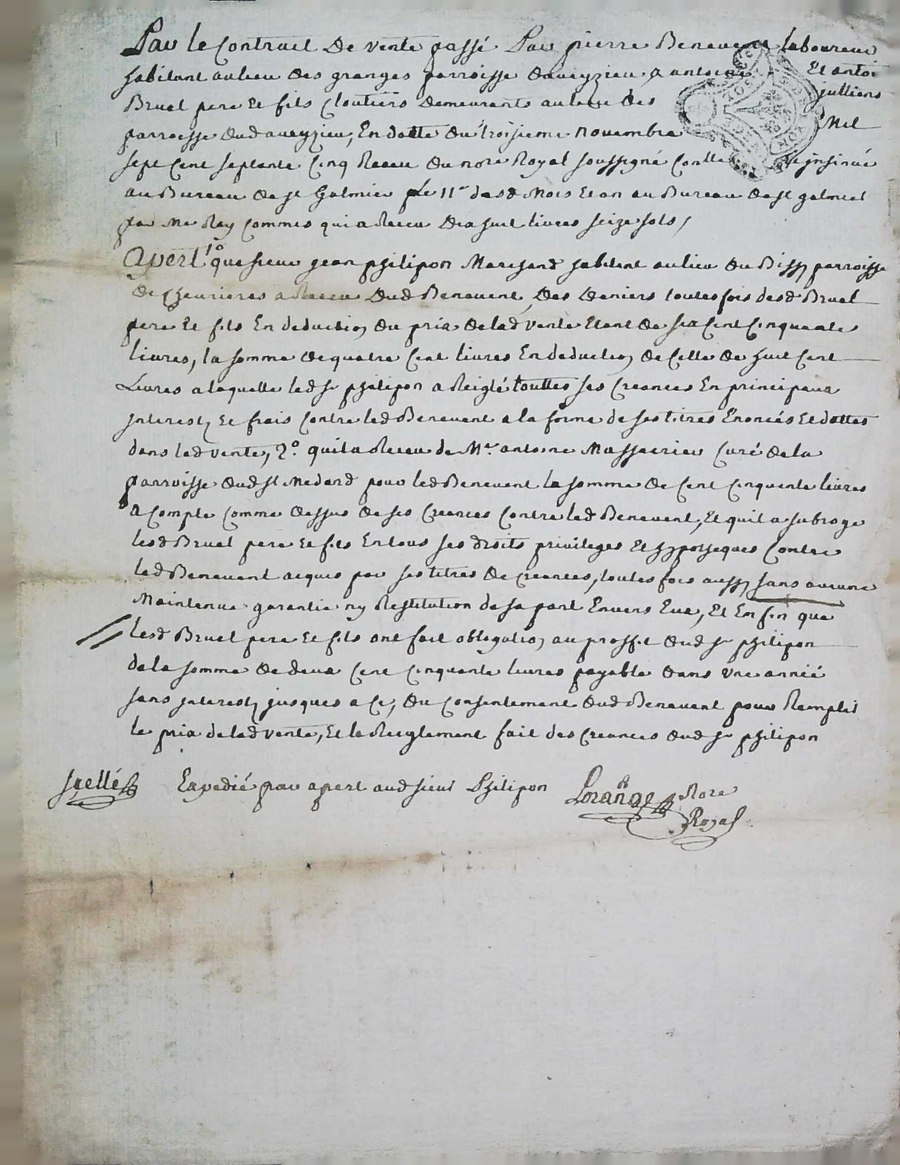 Par le Contrait De vente passé Par pierre Benevent laboureur
habitant au lieu des granges parroisse daveyzieu, a antoine Et antoi
Bruel pere Et fils Cloutiers demeurants au lieu des Jullions
parroisse dud aveyzieu, En datte du troisieme novembre Mil
sept Cent septante Cinq Receu du nore Royal soussigné Conllé Et jnsinué
au Bureau de st Galmier le 11e desd Mois Et an au Bureau de st galmier
par Me Rey Commis qui a Receu dix huit livres seize sols,
apert 1o que sieur jean philipon Marchand habitant au lieu du parroisse
de Chevrieres a Receu dud Benevent, des deniers toutes fois desd Bruel
pere Et fils En deduction du prix de lad vente Etant de six Cent Cinquante
livres, la somme de quatre Cent livres En deduction de Celle de huit Cent
Livres a laquelle led sr philipon a Reiglé touttes ses Creances En principeaux
jnterest, Et frais Contre led Benevent a la forme de ses titres Enoncés Et dattés
dans lad vente, 2o. quil a Receu de Mre antoine Massacrieu Curé de la
parroisse dud st Medard pour led Benevent la somme de Cent Cinquante livres
a Compte Comme dessus de ses Creances Contre led Benevent, Et quil a subrogé
lesd Bruel pere Et fils En tous ses droits privileges Et hypotheques Contre
led Benevent acquis par ses titres de Creances, toutes fois aussy sans aucune
Maintenue garantie ny Restitution de sa part Envers Eux, Et En fin que
lesd Bruel pere Et fils ont fait obligation au proffit dud sr philipon
de la somme de deux Cent Cinquante livres payable dans une année
sans jnterest jusques a Ce, du Consentement dud Benevent pour Remplir
le prix de lad vente, Et le Reiglement fait des Creances dud sr philipon
scellé Expedié par apert aud sieur Philipon Lorange Nore
Royal